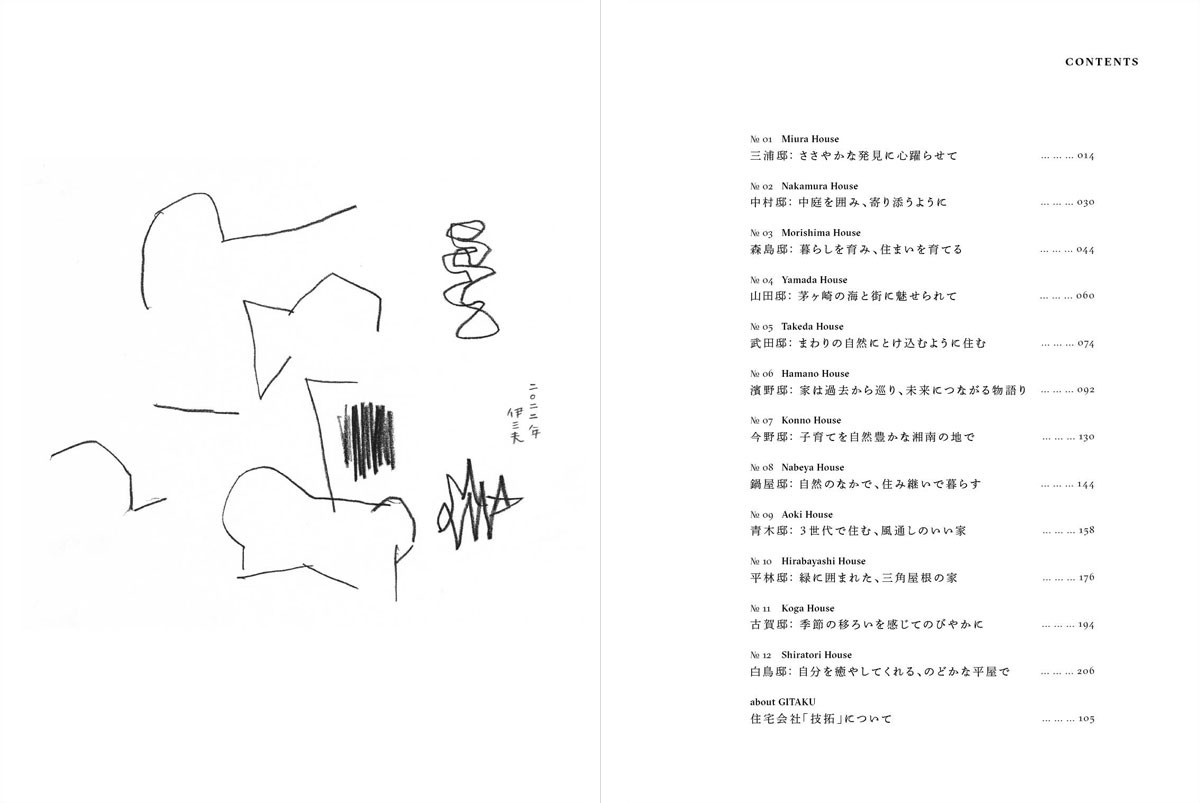 二〇二二年
伊三夫
CONTENTS
№ 01 Miura House
三浦邸：ささやかな発見に心躍らせて ... ... ... 014
№ 02 Nakamura House
中村邸：中庭を囲み、寄り添うように ... ... ... 030
№ 03 Morishima House
森島邸：暮らしを育み、住まいを育てる ... ... ... 044
№ 04 Yamada House
山田邸：茅ヶ崎の海と街に魅せられて ... ... ... 060
№ 05 Takeda House
武田邸：まわりの自然にとけ込むように住む ... ... ... 074
№ 06 Hamano House
濱野邸：家は過去から巡り、未来につながる物語り ... ... ... 092
№ 07 Konno House
今野邸：子育てを自然豊かな湘南の地で ... ... ... 130
№ 08 Nabeya House
鍋屋邸：自然のなかで、住み継いで暮らす ... ... ... 144
№ 09 Aoki House
青木邸：３世代で住む、風通しのいい家 ... ... ... 158
№ 10 Hirabayashi House
平林邸：緑に囲まれた、三角屋根の家 ... ... ... 176
№ 11 Koga House
古賀邸：季節の移ろいを感じてのびやかに ... ... ... 194
№ 12 Shiratori House
白鳥邸：自分を癒やしてくれる、のどかな平屋で ... ... ... 206
about GITAKU
住宅会社「技拓」について ... ... ... 105